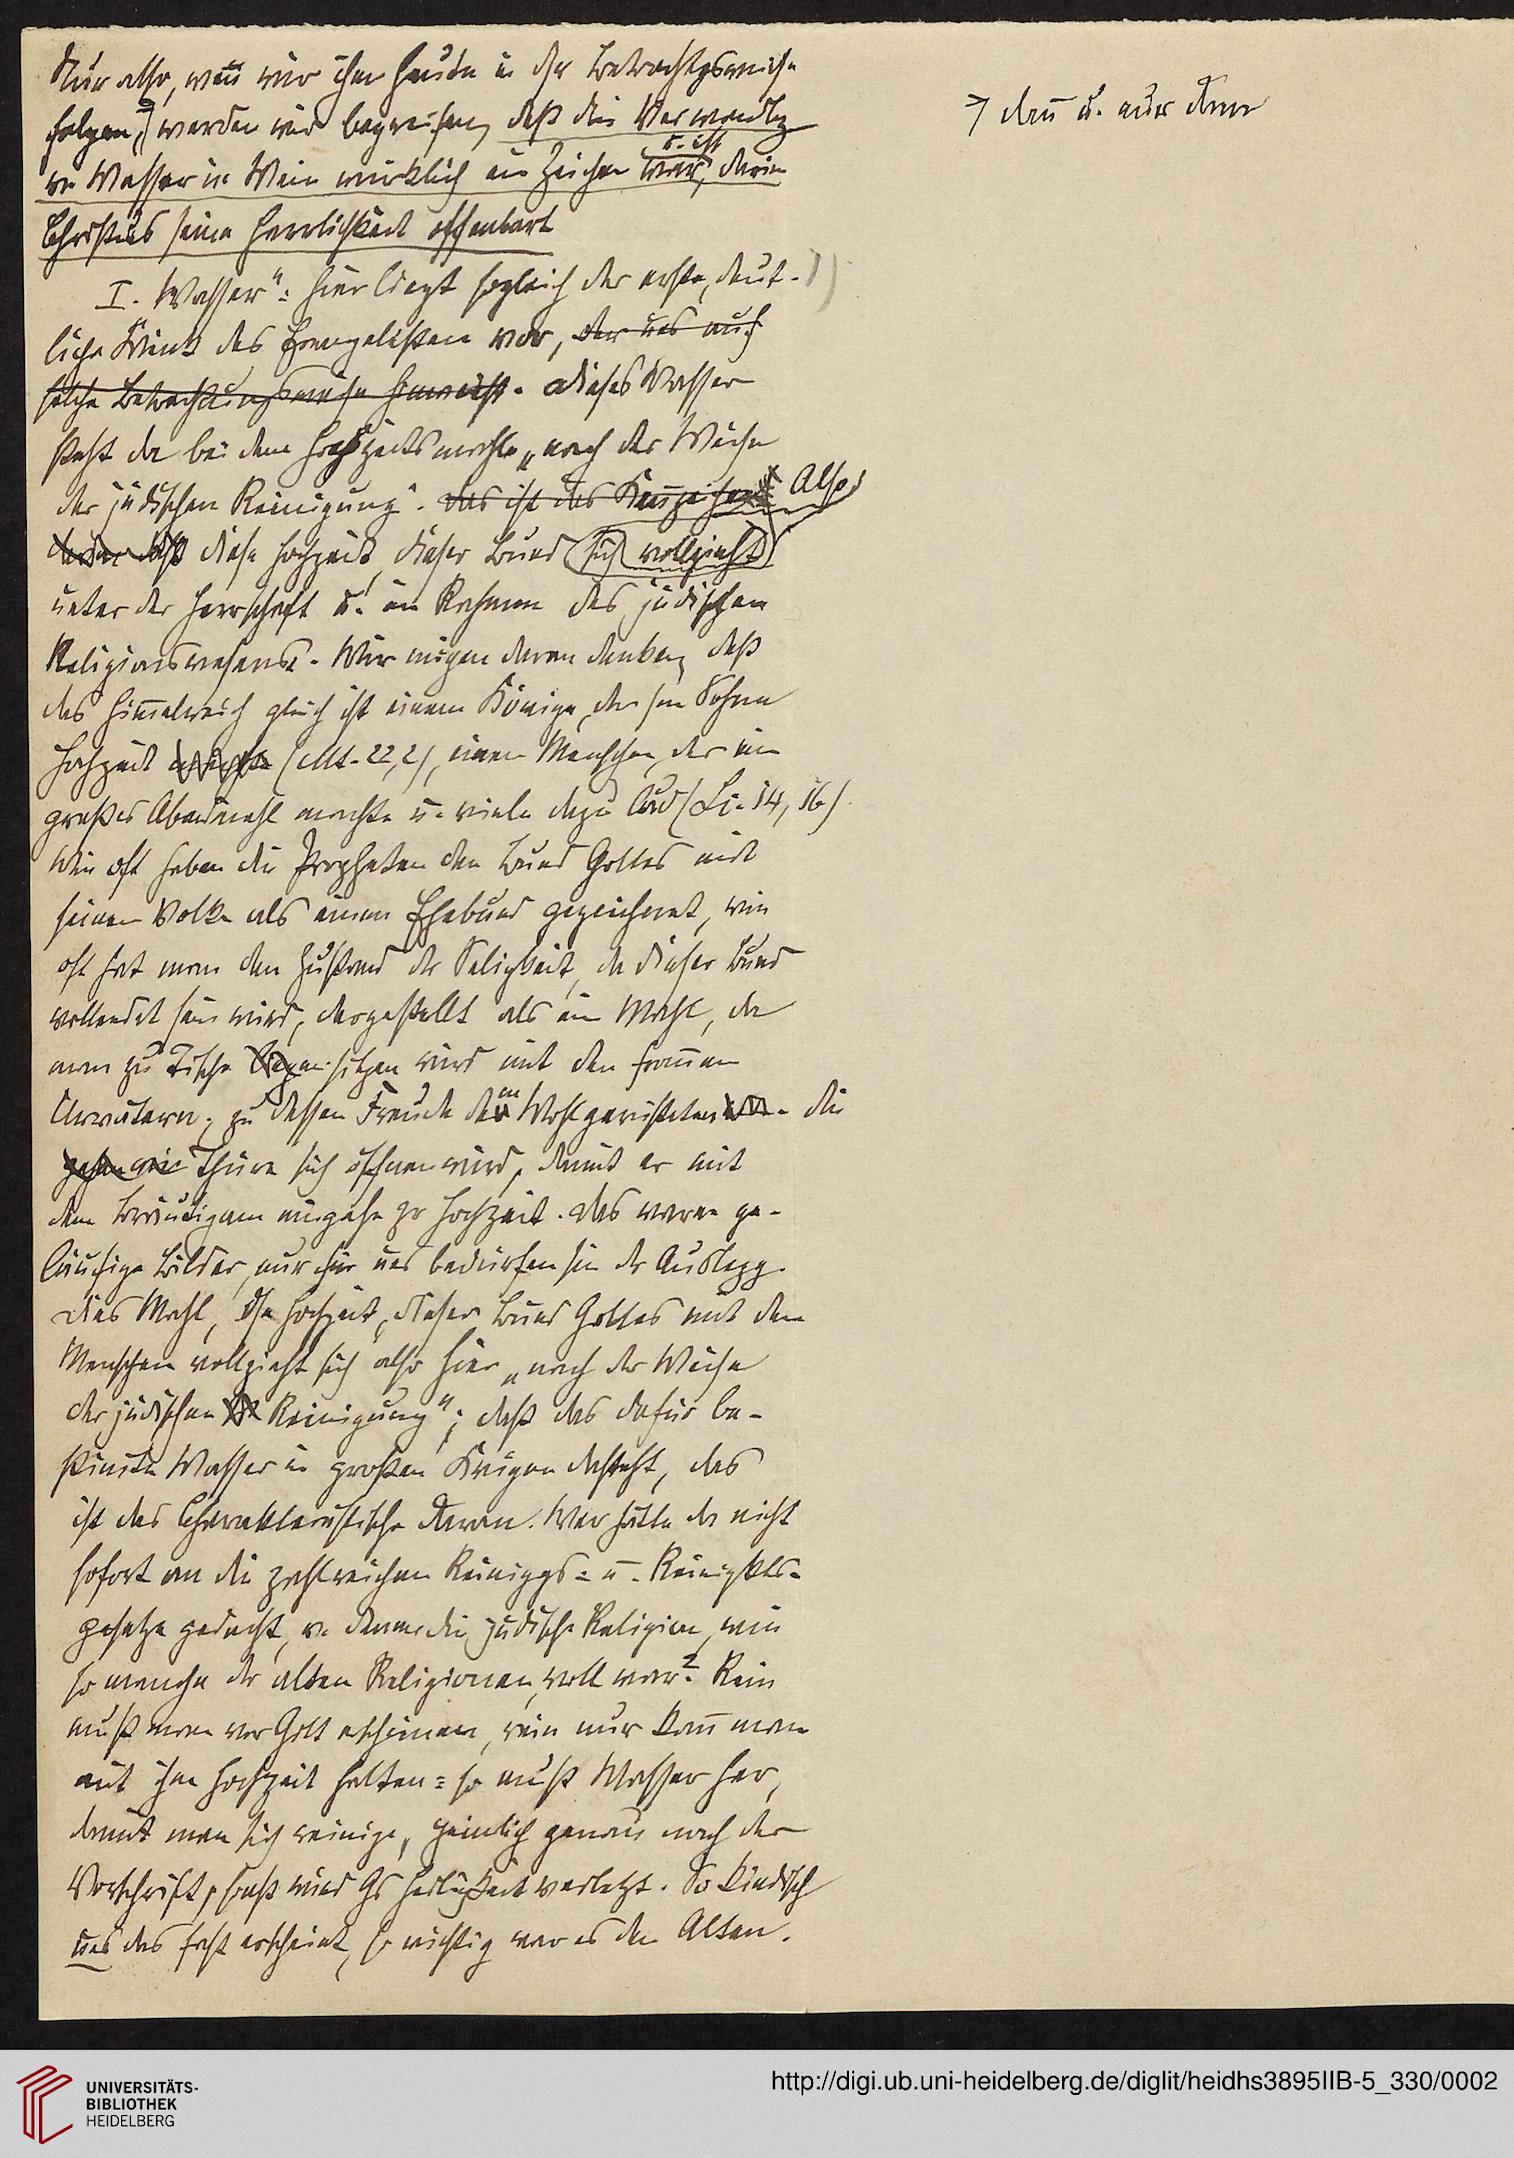 Nur also, wenn wir ihm heute in dsr Betrachtgsweise
folgen, werden wir begreifen, daß die Verwandlg
v. Wasser in Wein wirklich ein Zeichen war, darin
u. ist
Christus seine Herrlichkeit offenbart
⌝ denn u. nur dann
I. Wasser": hier liegt sogleich der erste, deut-
liche Wink des Evangelisten vor, der uns auf
solche Betrachtungsweise hinweist. Dieses Wasser
steht da bei dem Hochzeitsmahle „nach der Weise
der jüdischen Reinigung". Das ist das Kennzeichen Also
daß diese Hochzeit, dieser Bund (sich vollzieht)
unter der Herrschaft u. im Rahmen des jüdischen
Religionswesens. Wir mögen daran denken, daß
das Himmelreich gleich ist einem Könige, der sm Sohne
Hochzeit (Mt. 22,2), einem Menschen, der ein
großes Abendmahl machte u. viele dazu lud (Lc. 14, 16)
Wie oft haben die Propheten den Bund Gottes mit
seinem Volke als einen Ehebund gezeichnet, wie
oft hat man den Zustand der Seligkeit, da dieser Bund
vollendet sein wird, dargestellt als ein Mahl, da
man zu Tische sitzen wird mit den frommen
Urvätern, zu dessen Freude dem Wohlgerüsteten die
Thüre sich öffnen wird, damit er mit
dem Bräutigam eingehe zr Hochzeit. Das waren ge-
läufige Bilder, nur für uns bedürfen sie dr Auslegg.
Dies Mahl, dse Hochzeit, dieser Bund Gottes mit den
Menschen vollzieht sich also hier „nach der Weise
der jüdischen Reinigung"; daß das dafür be-
stimmte Wasser in großen Krügen dasteht, das
ist das Charakteristische daran. Wer hätte da nicht
sofort an die zahlreichen Reiniggs- u. Reinigkts-
gesetze gedacht, v. denen die jüdische Religion, wie
so manche dr alten Religionen, voll war? Rein
muß man vor Gott erscheinen, rein nur kann man
mit ihm Hochzeit halten: so muß Wasser her,
damit man sich reinige, peinlich genau nach der
Vorschrift, sonst wird Gs Heiligkeit verletzt. So kindisch
uns das fast erscheint, so wichtig war es den Alten.
UNIVERSITÄTS-
BIBLIOTHEK
HEIDELBERG
http://digi.ub.uni-heidelberg.de/diglit/heidhs3895IIB-5_330/0002